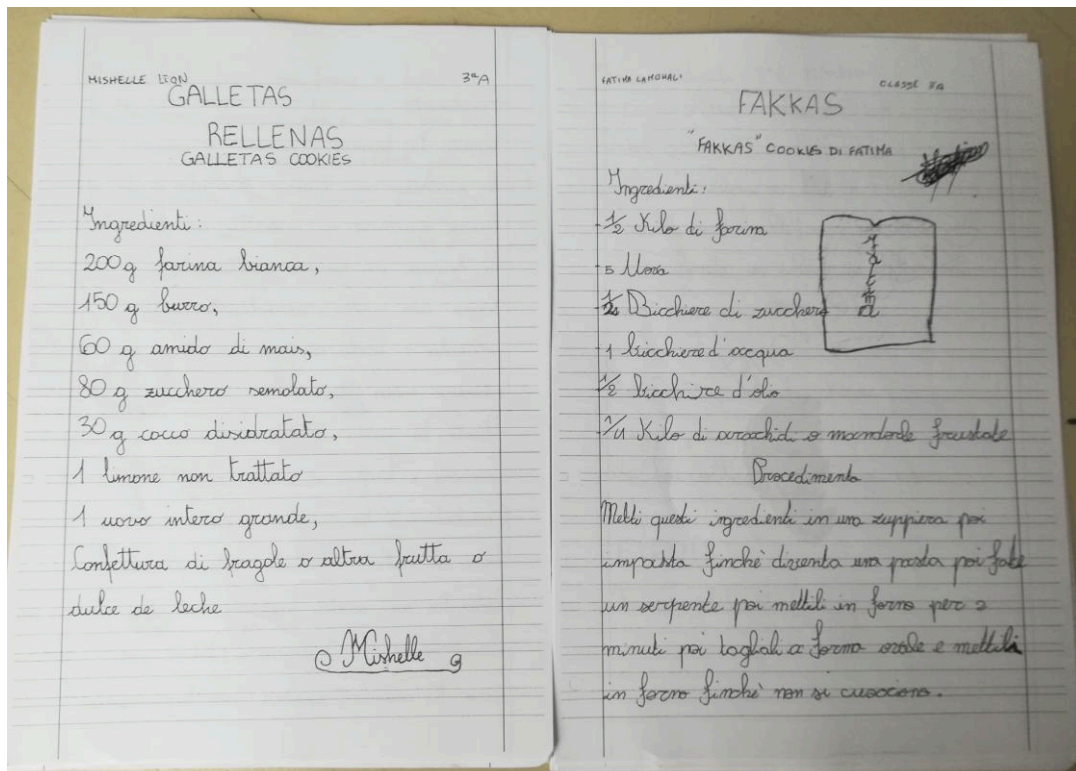 MISHELLE LEON 3ªA
GALLETAS
RELLENAS
GALLETAS COOKIES
Ingredienti:
200 g farina bianca,
150 g burro,
60 g amido di mais,
80 g zucchero semolato,
30 g cocco disidratato,
1 limone non trattato
1 uovo intero grande,
Confettura di fragole o altra frutta o
dulce de leche
Mishelle
FATIMA CLASSE
FAKKAS
"FAKKAS" COOKIES DI FATIMA
Ingredienti:
- 1/2 Kilo di farina
- 5 Uova
- 1/2 Bicchiere di zucchero
- 1 bicchiere d'acqua
- 1/2 d'olio
- 1/4 Kilo di arachidi o mandorle
Procedimento
Metti questi ingredienti in una zuppiera poi
impasta finchè diventa una pasta poi fate
un serpente poi mettili in forno per 2
minuti poi tagliali a forma ovale e mettili
in forno finchè non si cuociono.